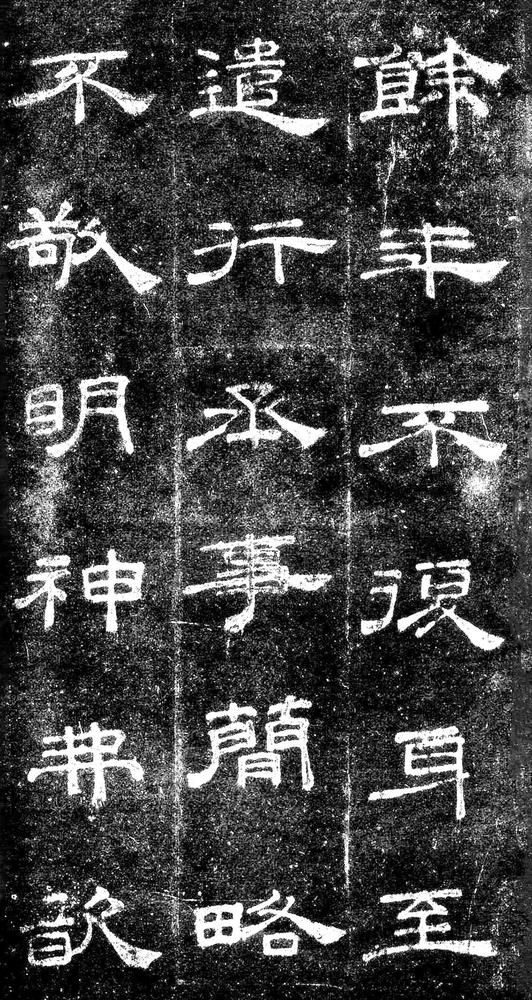 餘年不復身至
遣行承事簡略
不敬明神弗歆